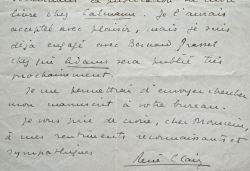 livre chez Calmann. Je l'aurais
accepté avec plaisir, mais je suis
déjà engagé avec Bernard Grasset
chez qui Adams sera publié très
prochainement.
Je me permettrai d'envoyer chercher
mon manuscrit à votre bureau.
Je vous prie de croire, cher Monsieur,
à mes sentiments reconnaissants et
sympathiques
René Clair